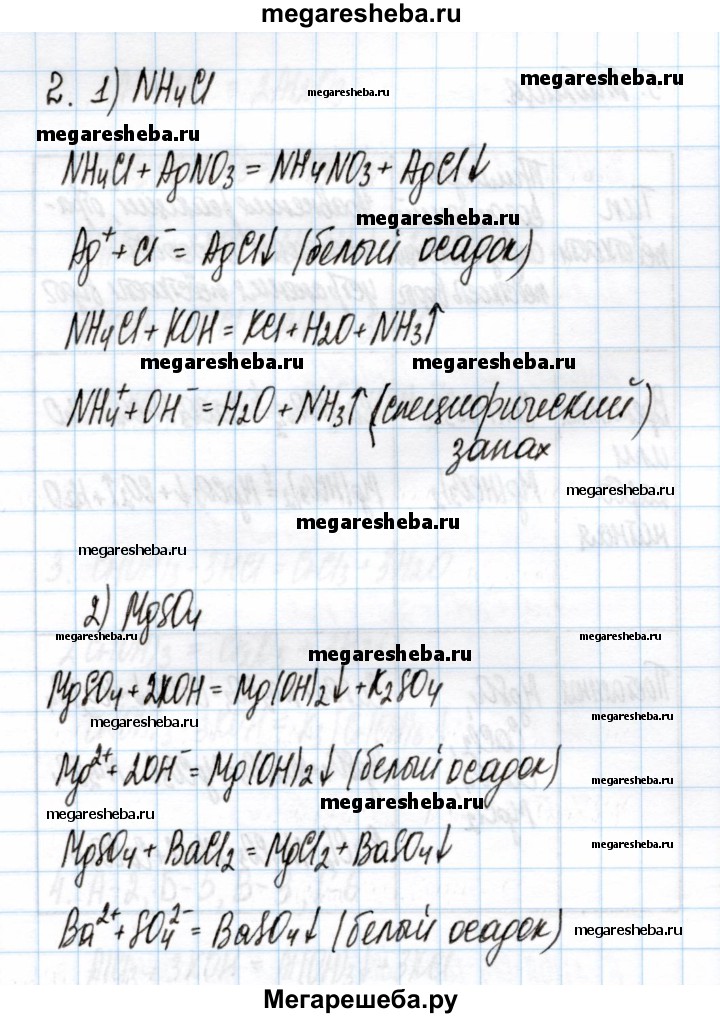 megaresheba.ru
2. 1) NH4Cl
megaresheba.ru
megaresheba.ru
megaresheba.ru
NH4Cl + AgNO3 = NH4NO3 + AgCl↓
megaresheba.ru
Ag⁺ + Cl⁻ = AgCl↓ (белый осадок)
NH4Cl + KOH = KCl + H2O + NH3↑
megaresheba.ru
megaresheba.ru
NH4⁺ + OH⁻ = H2O + NH3↑ (специфический)
запах
megaresheba.ru
megaresheba.ru
megaresheba.ru
2) MgSO4
megaresheba.ru
megaresheba.ru
megaresheba.ru
MgSO4 + 2KOH = Mg(OH)2↓ + K2SO4
megaresheba.ru
megaresheba.ru
Mg²⁺ + 2OH⁻ = Mg(OH)2↓ (белый осадок)
megaresheba.ru
megaresheba.ru
megaresheba.ru
MgSO4 + BaCl2 = MgCl2 + BaSO4↓
megaresheba.ru
Ba²⁺ + SO4²⁻ = BaSO4↓ (белый осадок)
megaresheba.ru
Мегарешеба.ру